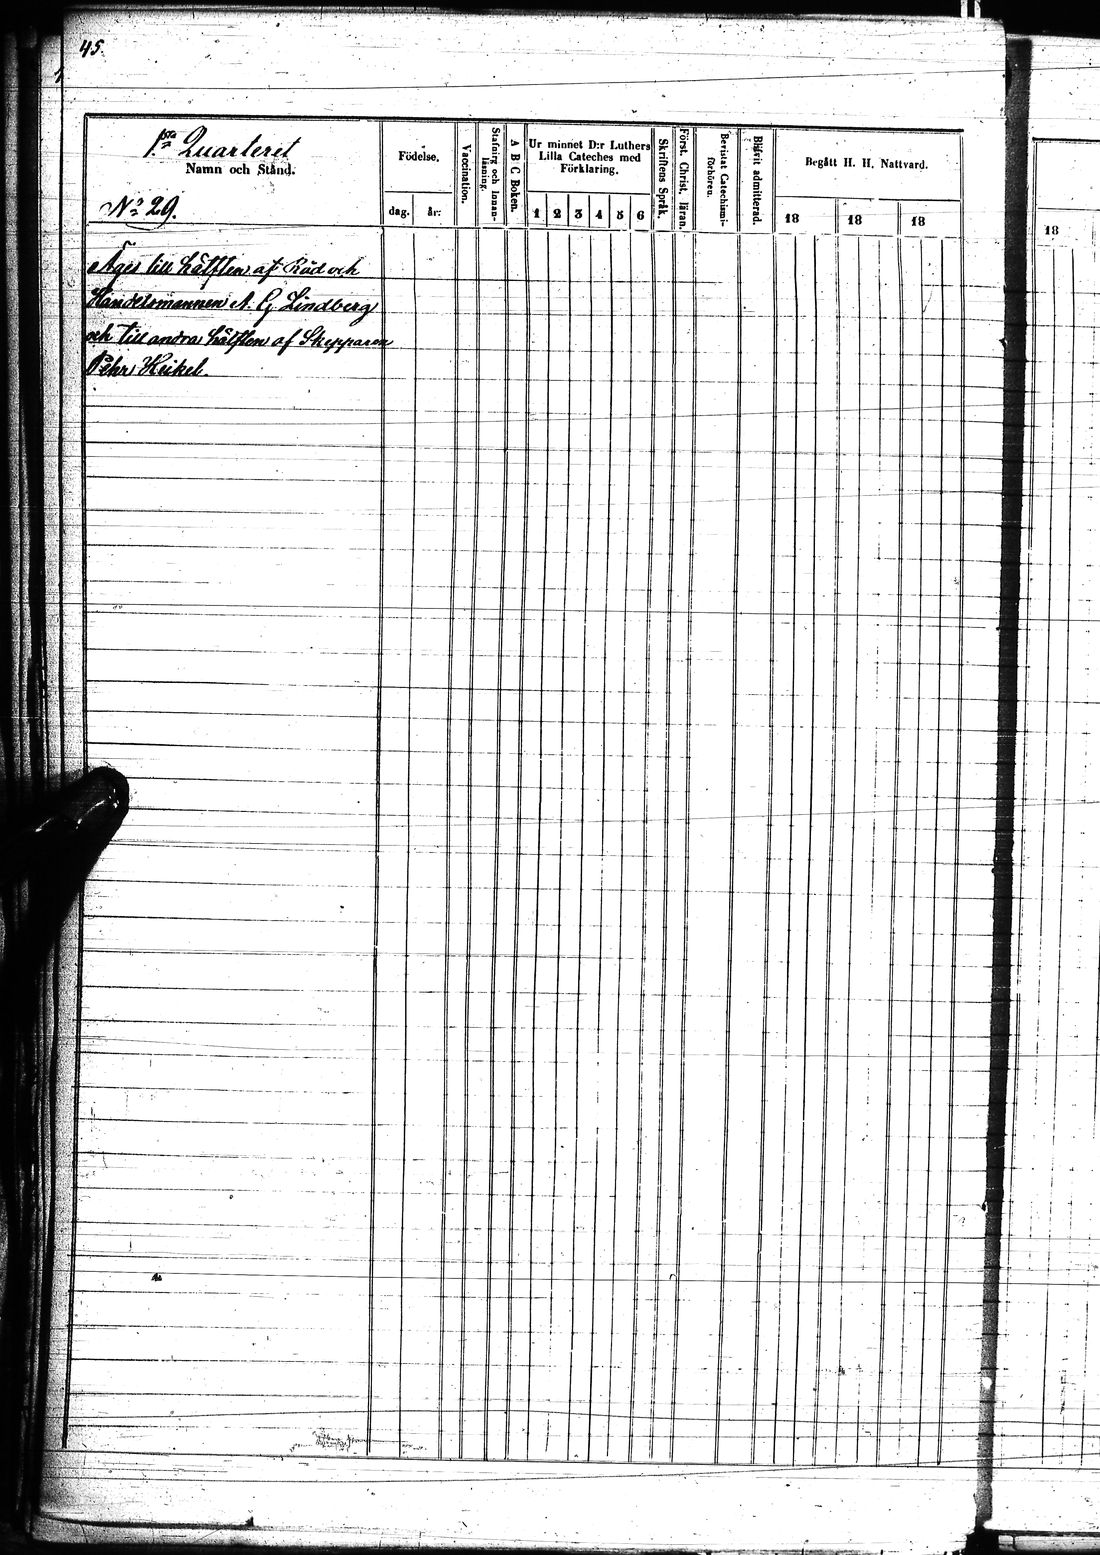 45.
1:sta Quarteret
Namn och Stånd.
No 29.
Födelse.
dag.
år:
Vaccination.
Stafning och Innan-
läsning.
A B C Boken.
Ur minnet D:r Luthers
Lilla Cateches med
Förklaring.
1 2 3 4 5 6
Skriftens Språk.
Först. Christ. läran.
Bevistat Catechismi-
förhören.
Blifvit admitterad.
Begått H. H. Nattvard.
18
18
18
18
Äges till hälften af Råd och
Handelsmannen A. G. Lindberg
och till andra hälften af Skepparen
Pehr Heikel.